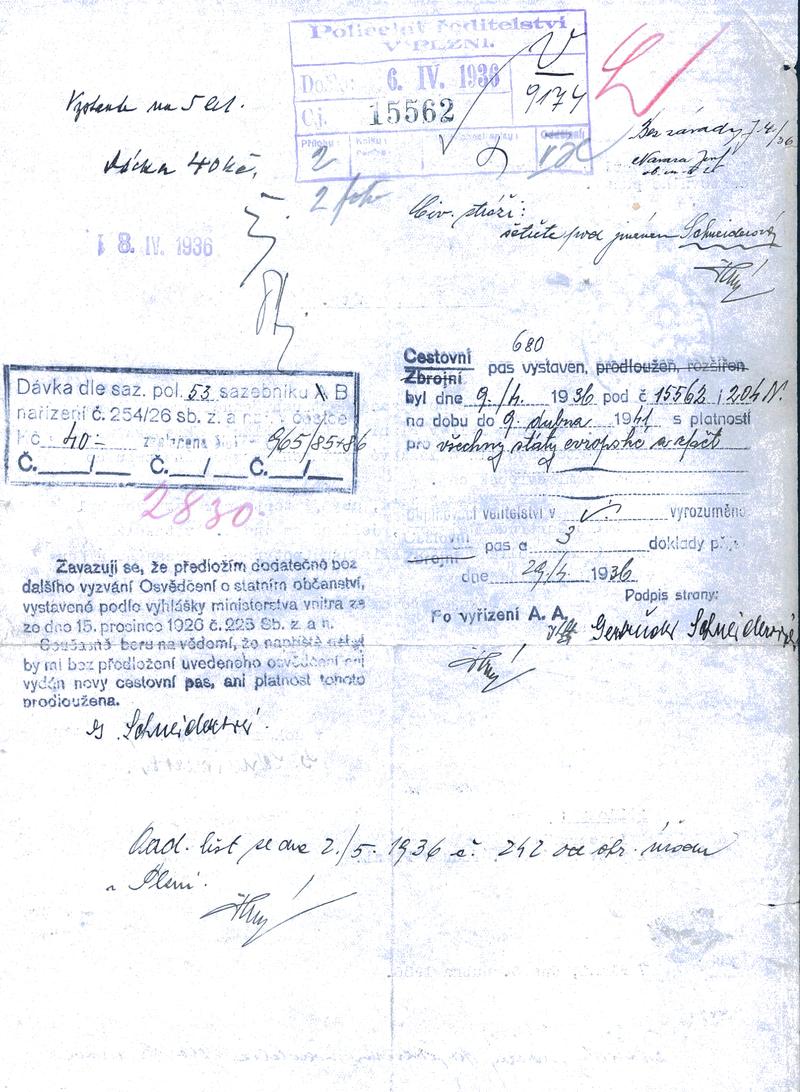 Policejní ředitelství
V PLZNI.
Došlo: 6. IV. 1936
Č.j. 15562
Přílohy:
2
2 foto
V
9174
Bez závady 7.4/36
Civ. stráži:
pod jménem Schneiderová
na 5 let.
Dávka 40 Kč,
8. IV. 1936
Dávka dle saz. pol. 53 sazebníku A B
nařízení č. 254/26 sb. z. a n.
Kč 40.- zaplacena 965/85+86
Č. / Č. / Č. /
2830.
Zavazuji se, že předložím dodatečně bez
dalšího vyzvání Osvědčení o statním občanství,
vystavené podle vyhlášky ministerstva vnitra ze
ze dne 15. prosince 1926 č. 225 Sb. z. a n.
Současně beru na vědomí, že napříště
by mi bez předložení uvedeného osvědčení ani
vydán novy cestovní pas, ani platnost tohoto
prodloužena.
G Schneiderová.
680
Cestovní
Zbrojní
pas vystaven, prodloužen, rozšířen
byl dne 9./4. 1936 pod č 15562 i 204 N.
na dobu do 9. dubna 1941 s platností
pro všechny státy evropské a zpět
velitelství v vyrozuměno
Cestovní
Zbrojní
pas a 3 doklady
dne 29/4 1936
Podpis strany:
Po vyřízení A. A. Gertruda Schneiderová
list ze dne 2./5. 1936 č. 242 od obv. úřadu
v Plzni.